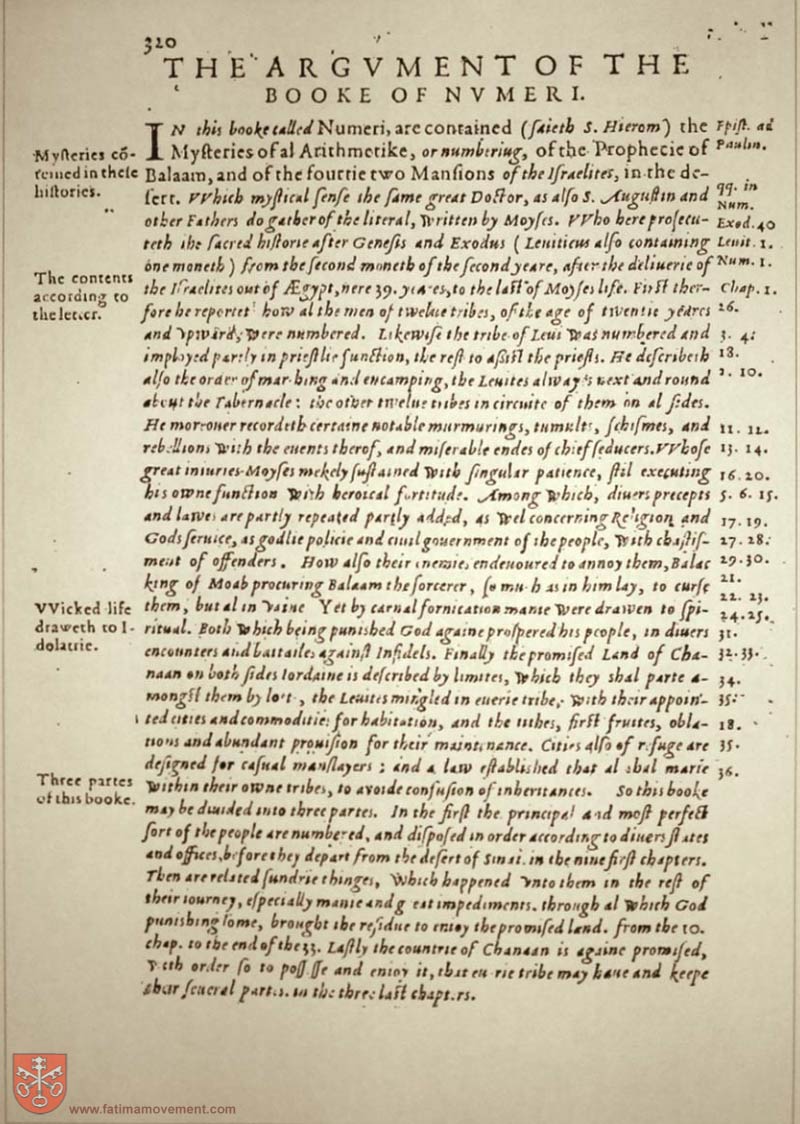 320
THE ARGVMENT OF THE
BOOKE OF NVMERI.
IN this booke called Numeri, are contained (saieth S. Hierom) the
Mysteries of al Arithmetike, or numbering, of the Prophecie of
Balaam, and of the fourtie two Mansions of the Israelites, in the de-
sert. VVhich mystical sense the same great Doctor, as also S. Augustin and
other Fathers do gather of the literal, written by Moyses. VVho here prosecu-
teth the sacred historie after Genesis and Exodus (Leuiticus also containing
one moneth) from the second moneth of the second yeare, after the deliuerie of
the Israelites out of Ægypt, nere 39. yeares, to the last of Moyses life. First ther-
fore he reporteth how al the men of twelue tribes, of the age of twentie yeares
and vpward, were numbered. Likewise the tribe of Leui was numbered and
imployed partly in priestlie function, the rest to assist the priests. He describeth
also the order of marching and encamping, the Leuites alwayes next and round
about the Tabernacle: the other twelue tribes in circuite of them on al sides.
He moreouer recordeth certaine notable murmurings, tumults, schismes, and
rebellions with the euents therof, and miserable endes of chief seducers. VVhose
great iniuries Moyses mekely sustained with singular patience, stil executing
his owne function with heroical fortitude. Among which, diuers precepts
and lawes are partly repeated partly added, as wel concerning Religion and
Gods seruice, as godlie policie and ciuil gouernment of the people, with chastis-
ment of offenders. How also their enemies endeuoured to annoy them, Balac
king of Moab procuring Balaam the sorcerer, so much as in him lay, to curse
them, but al in vaine Yet by carnal fornication manie were drawen to spi-
ritual. Both which being punished God againe prospered his people, in diuers
encounters and battailes against Infidels. Finally the promised Land of Cha-
naan on both sides Iordaine is described by limites, which they shal parte a-
mongst them by lott, the Leuites mingled in euerie tribe, with their appoin-
ted cities and commodities for habitation, and the tithes, first fruites, obla-
tions and abundant prouision for their maintenance. Cities also of refuge are
designed for casual manslayers; and a law established that al shal marie
within their owne tribes, to avoide confusion of inheritances. So this booke
may be diuided into three partes. In the first the principal and most perfect
sort of the people are numbered, and disposed in order according to diuers states
and offices, before they depart from the desert of Sinai. in the nine first chapters.
Then are related sundrie thinges, which happened vnto them in the rest of
their iourney, especially manie and great impediments. through al which God
punishing some, brought the residue to enioy the promised land. from the 10.
chap. to the end of the 33. Lastly the countrie of Chanaan is againe promised,
with order so to possesse and enioy it, that euerie tribe may haue and keepe
their seueral partes. in the three last chapters.
Mysteries cō-
teined in these
histories.
The contents
according to
the letter.
VVicked life
draweth to I-
dolatrie.
Three partes
of this booke.
Epist. ad
Paulin.
qq. in
Num.
Exod. 40
Leuit. 1.
Num. 1.
Chap. 1.
26.
3. 4:
18.
2. 10.
11. 12.
13. 14.
16. 20.
5. 6. 15.
17. 19.
27. 28:
29. 30.
21.
22. 23.
24. 25.
31.
32. 33.
34.
35:
18.
35.
36.
www.fatimamovement.com